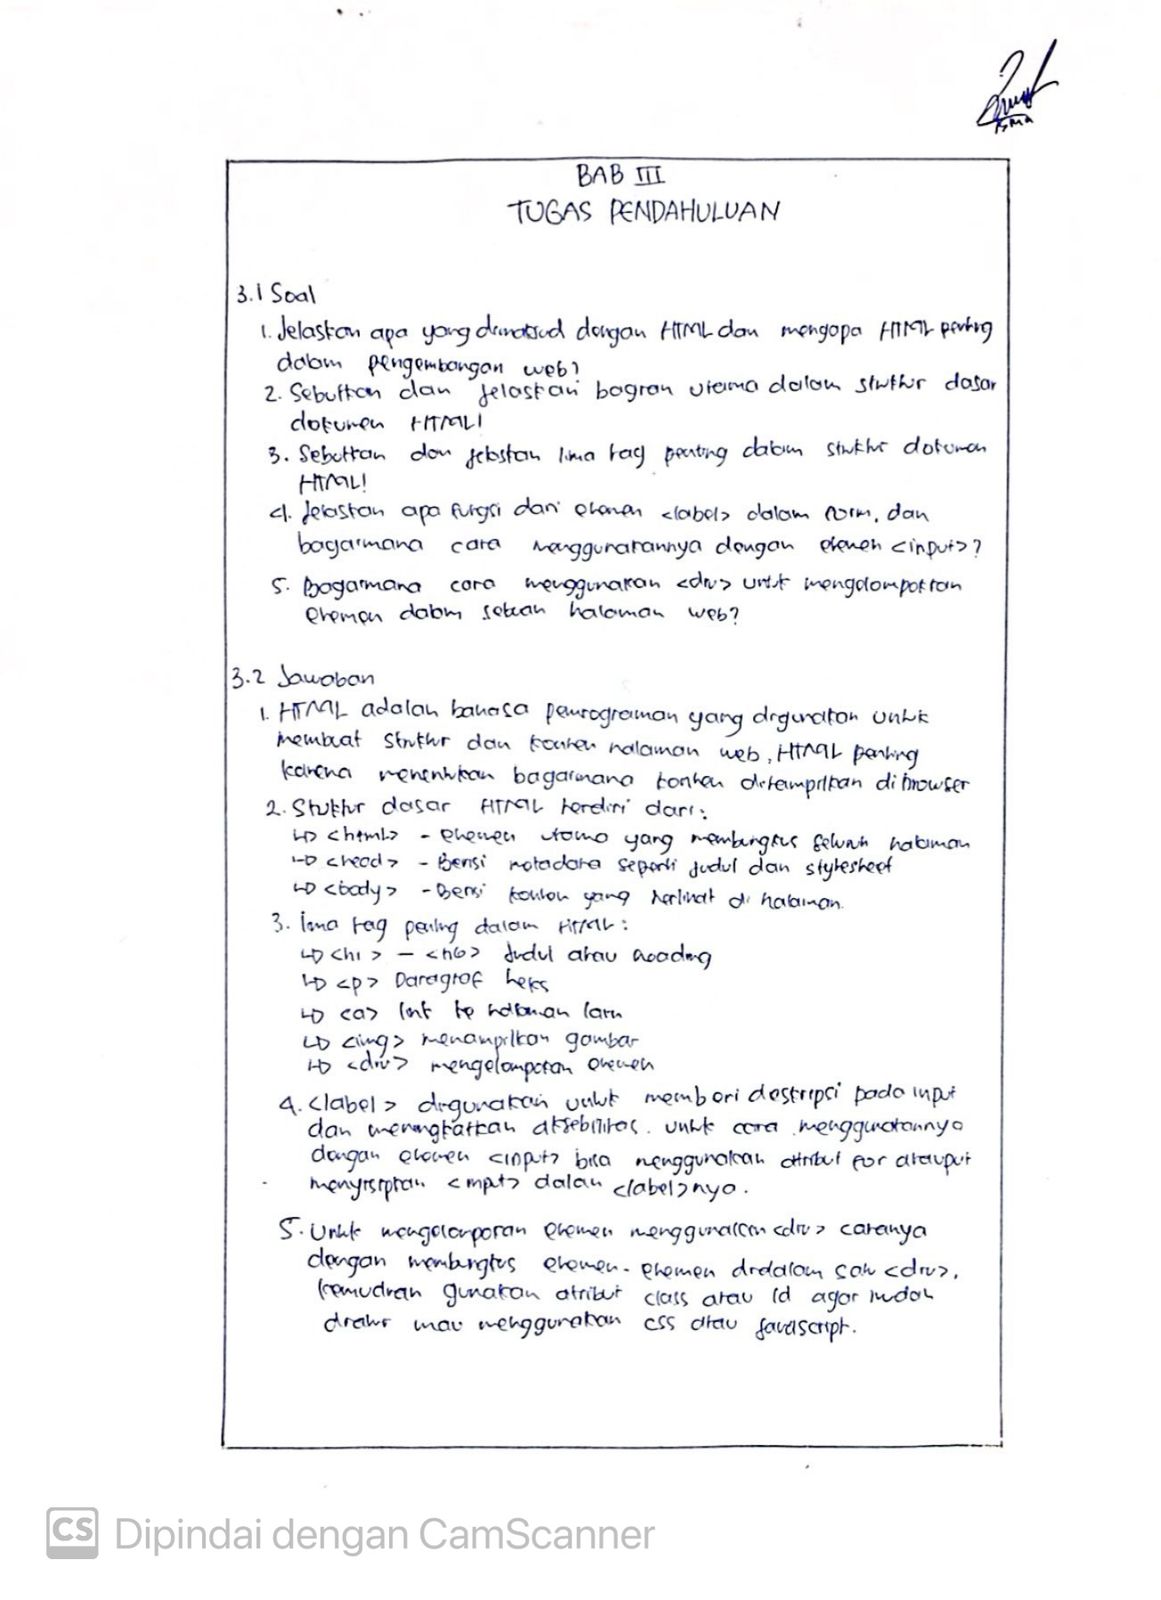 BMA
BAB III
TUGAS PENDAHULUAN
3.1 Soal
1. Jelaskan apa yang dimaksud dengan HTML dan mengapa HTML penting
dalam pengembangan web?
2. Sebutkan dan jelaskan bagian utama dalam struktur dasar
dokumen HTML!
3. Sebutkan dan jelaskan lima tag penting dalam struktur dokumen
HTML!
4. Jelaskan apa fungsi dari elemen <label> dalam form, dan
bagaimana cara menggunakannya dengan elemen <input>?
5. Bagaimana cara menggunakan <div> untuk mengelompokkan
elemen dalam sebuah halaman web?
3.2 Jawaban
1. HTML adalah bahasa pemrograman yang digunakan untuk
membuat struktur dan konten halaman web, HTML penting
karena menentukan bagaimana konten ditampilkan di browser
2. Stuktur dasar HTML terdiri dari:
↳ <html> - elemen utama yang membungkus seluruh halaman
↳ <head> - Berisi metadata seperti judul dan stylesheet
↳ <body> - Berisi konten yang terlihat di halaman.
3. lima tag penting dalam HTML:
↳ <h1> - <h6> Judul atau heading
↳ <p> Paragraf teks
↳ <a> link ke halaman lain
↳ <img> menampilkan gambar
↳ <div> mengelompokan elemen
4. <label> digunakan untuk memberi deskripsi pada input
dan meningkatkan aksebilitas. untuk cara menggunakannya
dengan elemen <input> bisa menggunakan attribut for ataupun
menyisipkan <input> dalam <label>nya.
5. Untuk mengelompokan elemen menggunakan <div> caranya
dengan membungkus elemen-elemen didalam satu <div>,
kemudian gunakan atribut class atau id agar mudah
diatur mau menggunakan css atau javascript.
CS Dipindai dengan CamScanner